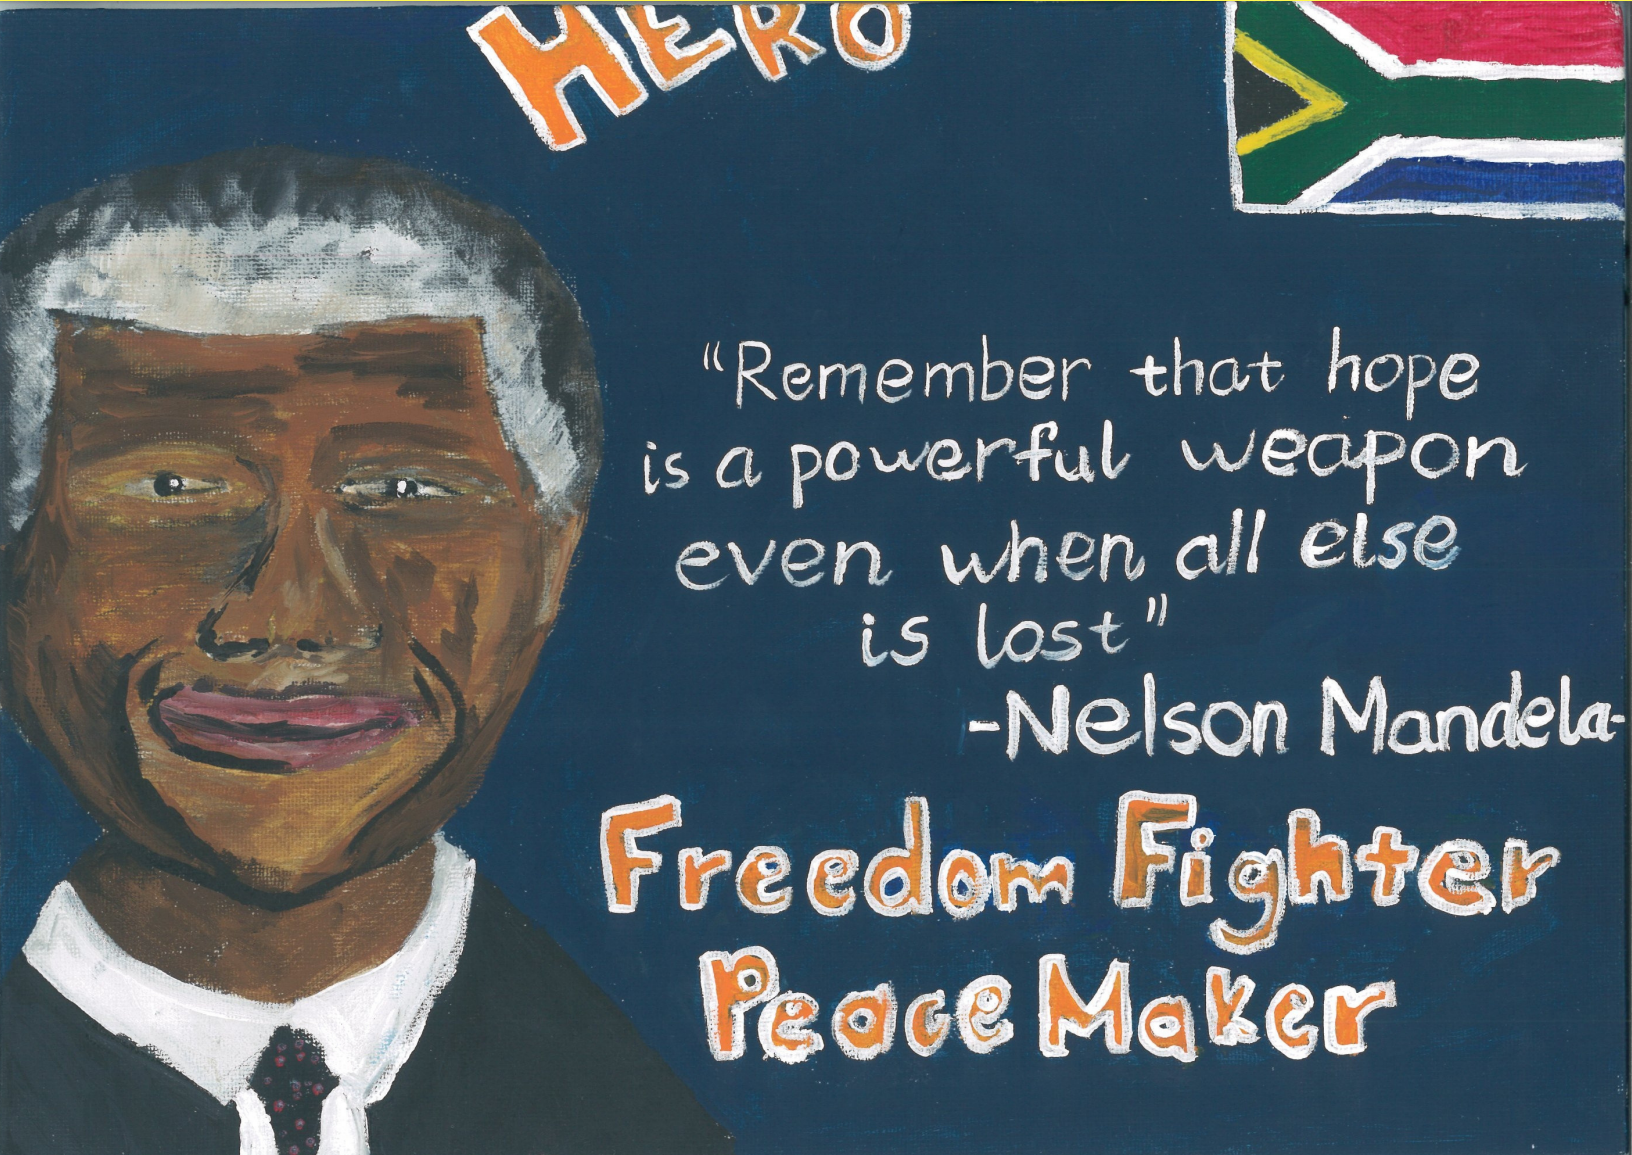 HERO
“Remember that hope
is a powerful weapon
even when all else
is lost”
-Nelson Mandela-
Freedom Fighter
Peace Maker